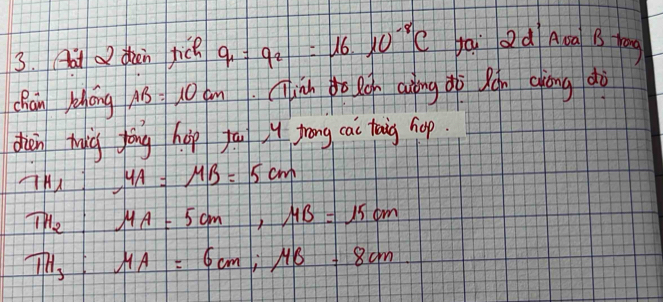 3. Đặt 2 điện tích q₁ = q₂ = 16.10⁻⁸C tại 2đ' A và B trong
chân không AB = 10 cm. Tính độ lớn cường độ lớn cường độ
điện trường tổng hợp tại M trong các trường hợp.
TH₁: MA = MB = 5 cm
TH₂: MA = 5 cm, MB = 15 cm
TH₃: MA = 6 cm; MB = 8 cm